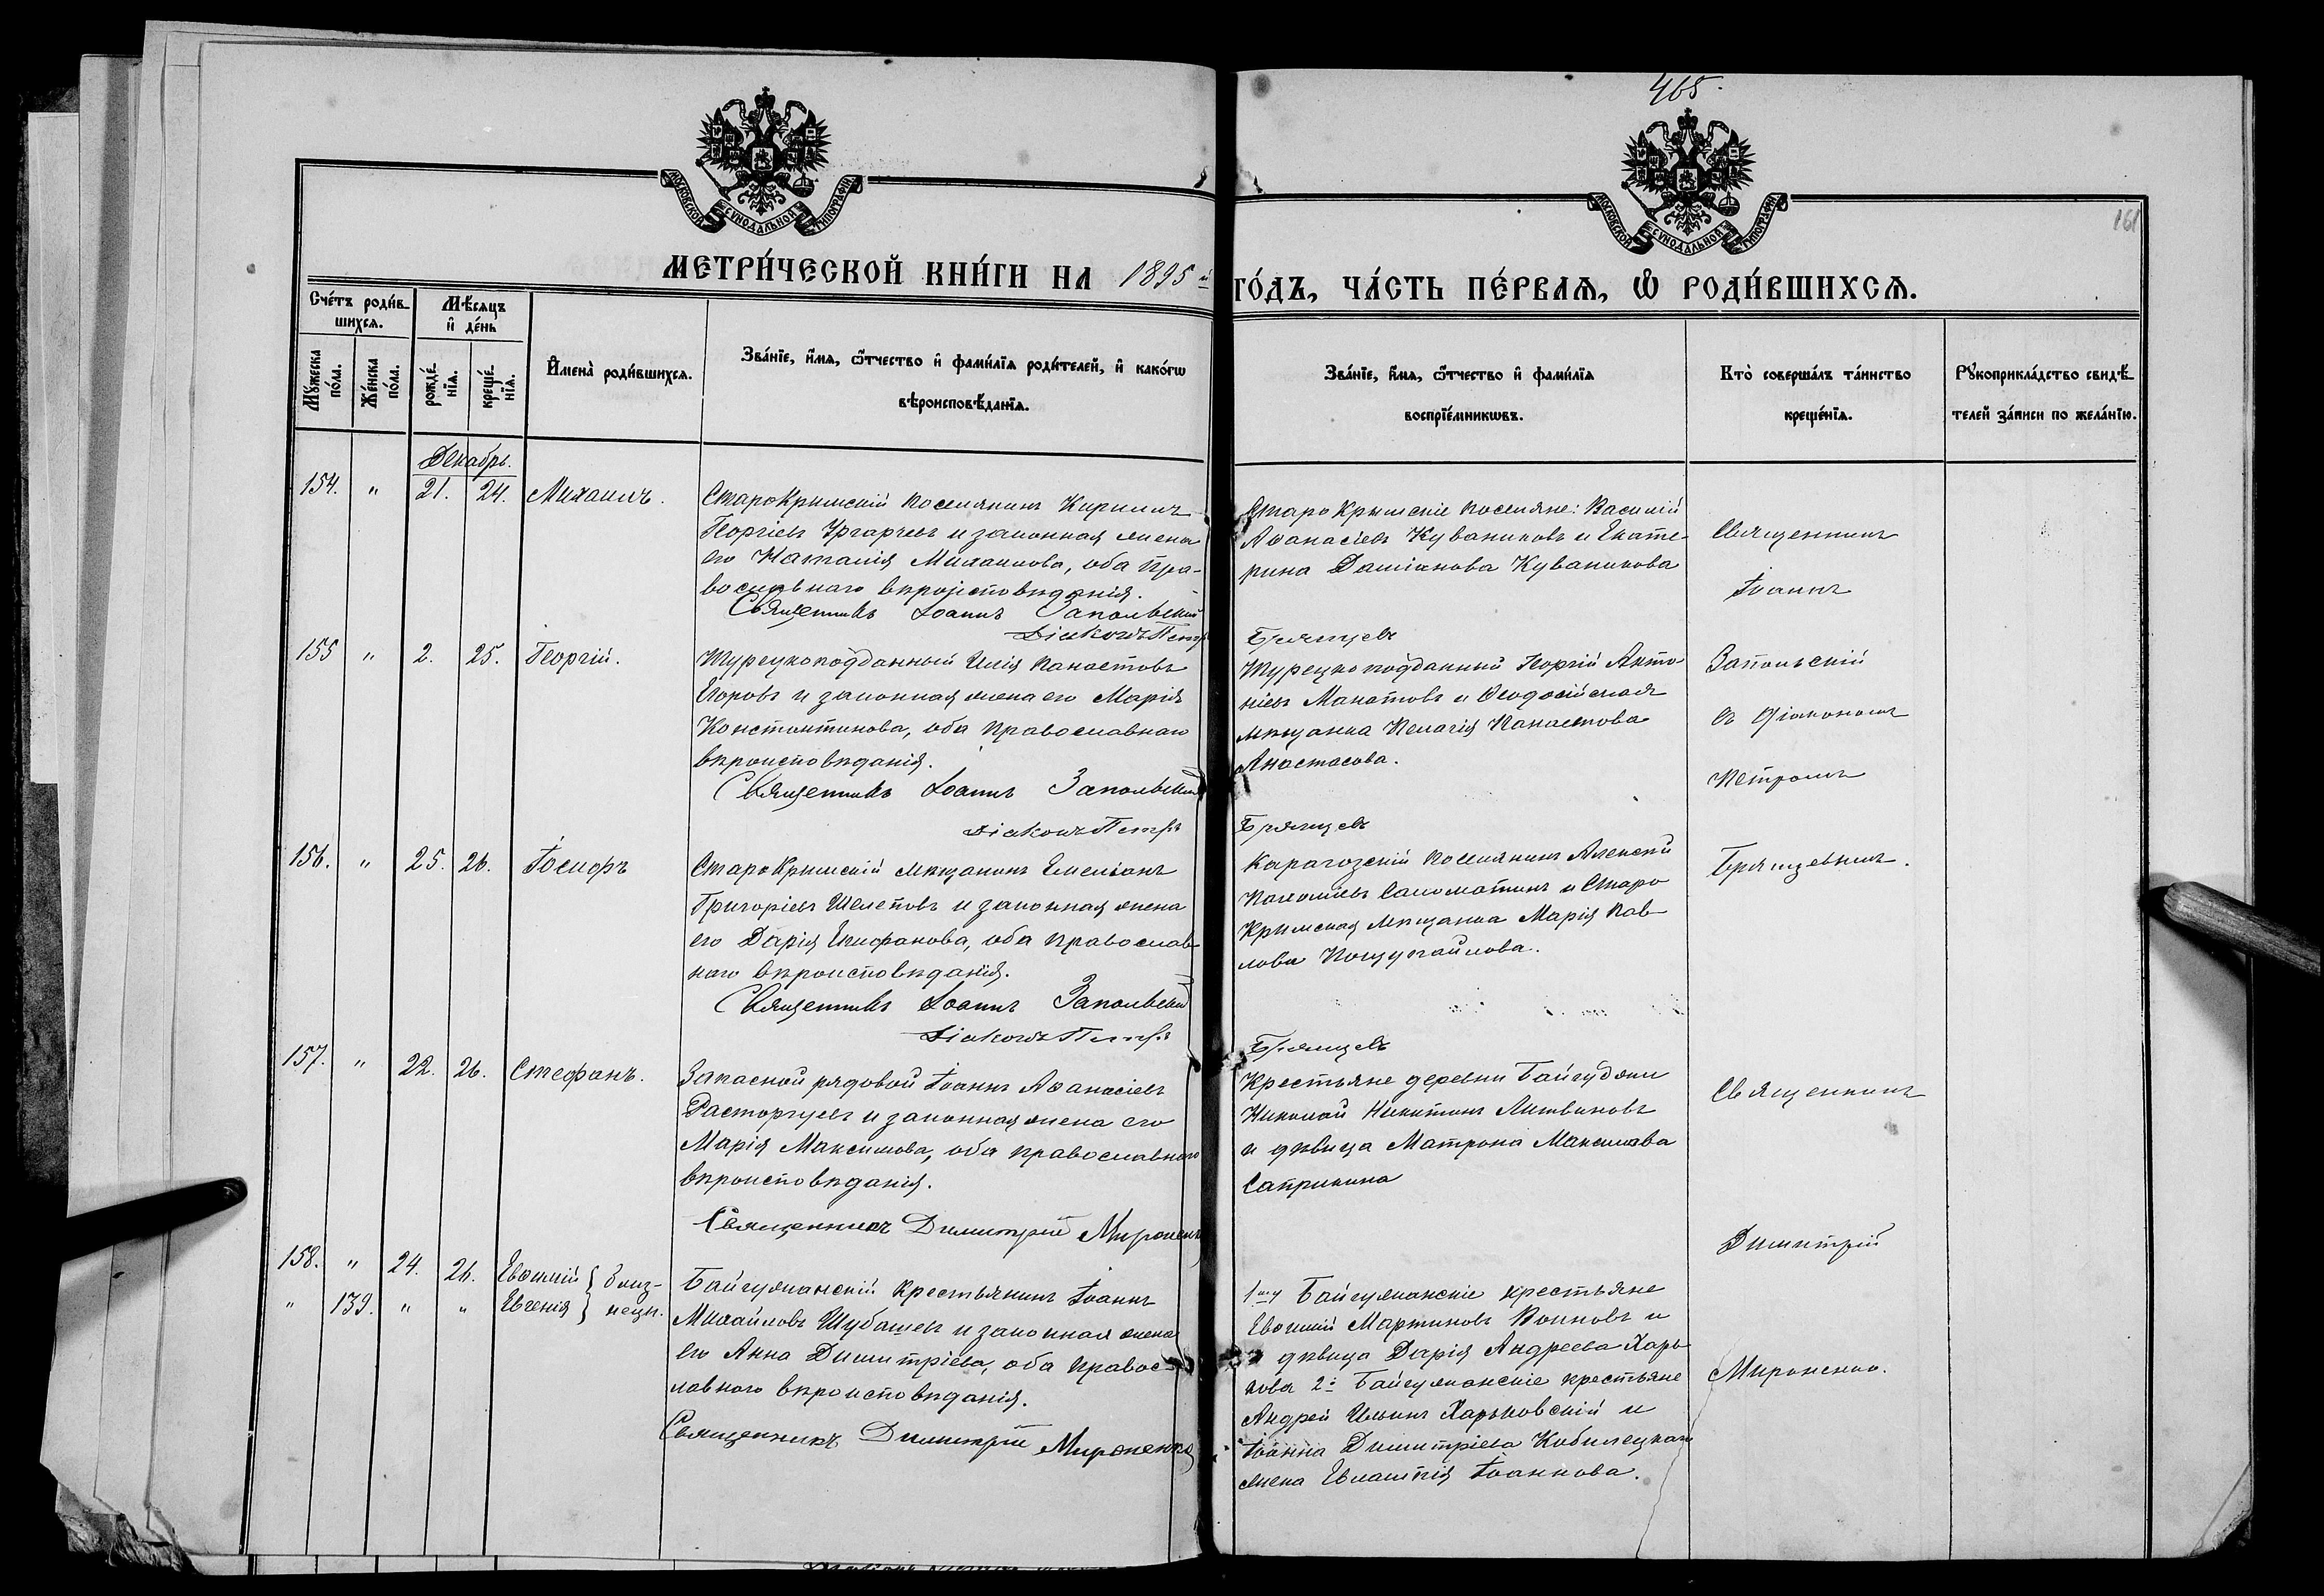 465.
161
МОСКОВСКОЙ СѴНОДАЛЬНОЙ ТИПОГРАФІИ
МОСКОВСКОЙ СѴНОДАЛЬНОЙ ТИПОГРАФІИ
МЕТРИ́ЧЕСКОЙ КНИ́ГИ НА 1895 й
ГО́ДЪ, ЧА́СТЬ ПЕ́РВАЯ, Ѡ РОДИ́ВШИХСЯ.
Сче́тъ роди́в-
шихся.
Мꙋ́жеска по́ла.
Же́нска по́ла.
Мѣ́сяцъ
и҆ де́нь
рожде́нїя.
креще́нїя.
И҆мена̀ роди́вшихся.
Зва́нїе, и҆́мя, ѻ҆́тчество и҆ фами́лїя роди́телей, и҆ како́гѡ
вѣроисповѣ́данїя.
Зва́нїе, и҆́мя, ѻ҆́тчество и҆ фами́лїя
воспрїе́мникѡвъ.
Кто̀ соверша́лъ та́инство
креще́нїя.
Рꙋкоприкла́дство свидѣ́-
телей за́писи по жела́нїю.
Декабрь.
154. " 21. 24. Михаилъ.
СтароКрымскій поселянинъ Кириллъ
Георгіевъ Ургарчевъ и законная жена
его Наталія Михаилова, оба пра-
вославнаго вѣроисповѣданія.
Священникъ Іоаннъ Запольскій
Діаконъ Петръ
СтароКрымскіе поселяне: Василій
Аѳанасіевъ Куваниковъ и Екате-
рина Даміанова Куваникова
Брянцевъ
Священникъ
Іоаннъ
155 " 2. 25. Георгій.
Турецкоподданный Илія Панаетовъ
и законная жена его Марія
Константинова, оба православнаго
вѣроисповѣданія.
Священникъ Іоаннъ Запольскій
Діаконъ Петръ
Турецкоподданный Георгій Анто-
ніевъ Манатовъ и Ѳеодосійская
мѣщанка Пелагія Панаетова
Анастасова.
Брянцевъ
Запольскій
съ Діакономъ
Петромъ
156. " 25. 26. Іосифъ
СтароКрымскій мѣщанинъ Емеліанъ
Григоріевъ Шелеповъ и законная жена
его Дарія Епифанова, оба православ-
наго вѣроисповѣданія.
Священникъ Іоаннъ Запольскій
Діаконъ Петръ
Карагозскій поселянинъ Алексій
Пахоміевъ Саломатинъ и Старо
Крымская мѣщанка Марія Пав-
лова
Брянцевъ
Брянцевымъ.
157. " 22. 26. Стефанъ.
Запасной рядовой Іоаннъ Аѳанасіевъ
Расторгуевъ и законная жена его
Марія Максимова, оба православнаго
вѣроисповѣданія.
Священникъ Димитрій Мироненко
Крестьяне деревни
Николай Никитинъ Литвиновъ
и дѣвица Матрона Максимова
Саприкина
Священникъ
Димитрій
158. " 24. 26. Евѳимій } близ-
" 139. " " Евгенія } нецы.
Байгуджанскій крестьянинъ Іоаннъ
Михайловъ Шубашевъ и законная жена
его Анна Димитріева, оба правос-
лавнаго вѣроисповѣданія.
Священникъ Димитрій Мироненко
Байгуджанскіе крестьяне
Евѳимій Мартиновъ Воиновъ и
дѣвица Дарія Андреева Харь-
кова 2е Байгуджанскіе крестьяне
Андрей Ильинъ Харьковскій и
Іоанна Димитріева Кобилецкаго
жена Евлампія Іоаннова.
Мироненко.